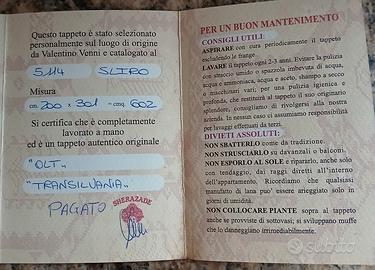 Questo tappeto è stato selezionato
personalmente sul luogo di origine
da Valentino Venni e catalogato al
5114 SLIRO
Misura
cm. 200 x 301 = cmq. 602
Si certifica che è completamente
lavorato a mano
ed è un tappeto autentico originale
"OLT"
"TRANSILVANIA"
PAGATO
SHERAZADE
PER UN BUON MANTENIMENTO
CONSIGLI UTILI:
ASPIRARE con cura periodicamente il tappeto
escludendo le frange.
LAVARE il tappeto ogni 2-3 anni. Evitare la pulizia
con straccio umido o spazzola imbevuta di acqua,
acqua e ammoniaca, acqua e aceto, shampo a secco
o macchinari vari, per una pulizia igienica e
profonda, che restituirà al tappeto il suo originario
splendore, consigliamo di rivolgersi alla nostra
azienda. In nessun caso ci assumiamo responsabilità
per lavaggi effettuati da terzi.
DIVIETI ASSOLUTI:
NON SBATTERLO come da tradizione.
NON STRUSCIARLO su davanzali o balconi.
NON ESPORLO AL SOLE e ripararlo, anche solo
con tendaggio, dai raggi diretti all'interno
dell'appartamento. Ricordiamo che qualsiasi
manufatto di lana può essere arieggiato solo in
giorni di umidità.
NON COLLOCARE PIANTE sopra al tappeto
anche se provviste di sottovasi; si sviluppano muffe
che lo danneggiano irrimediabilmente.